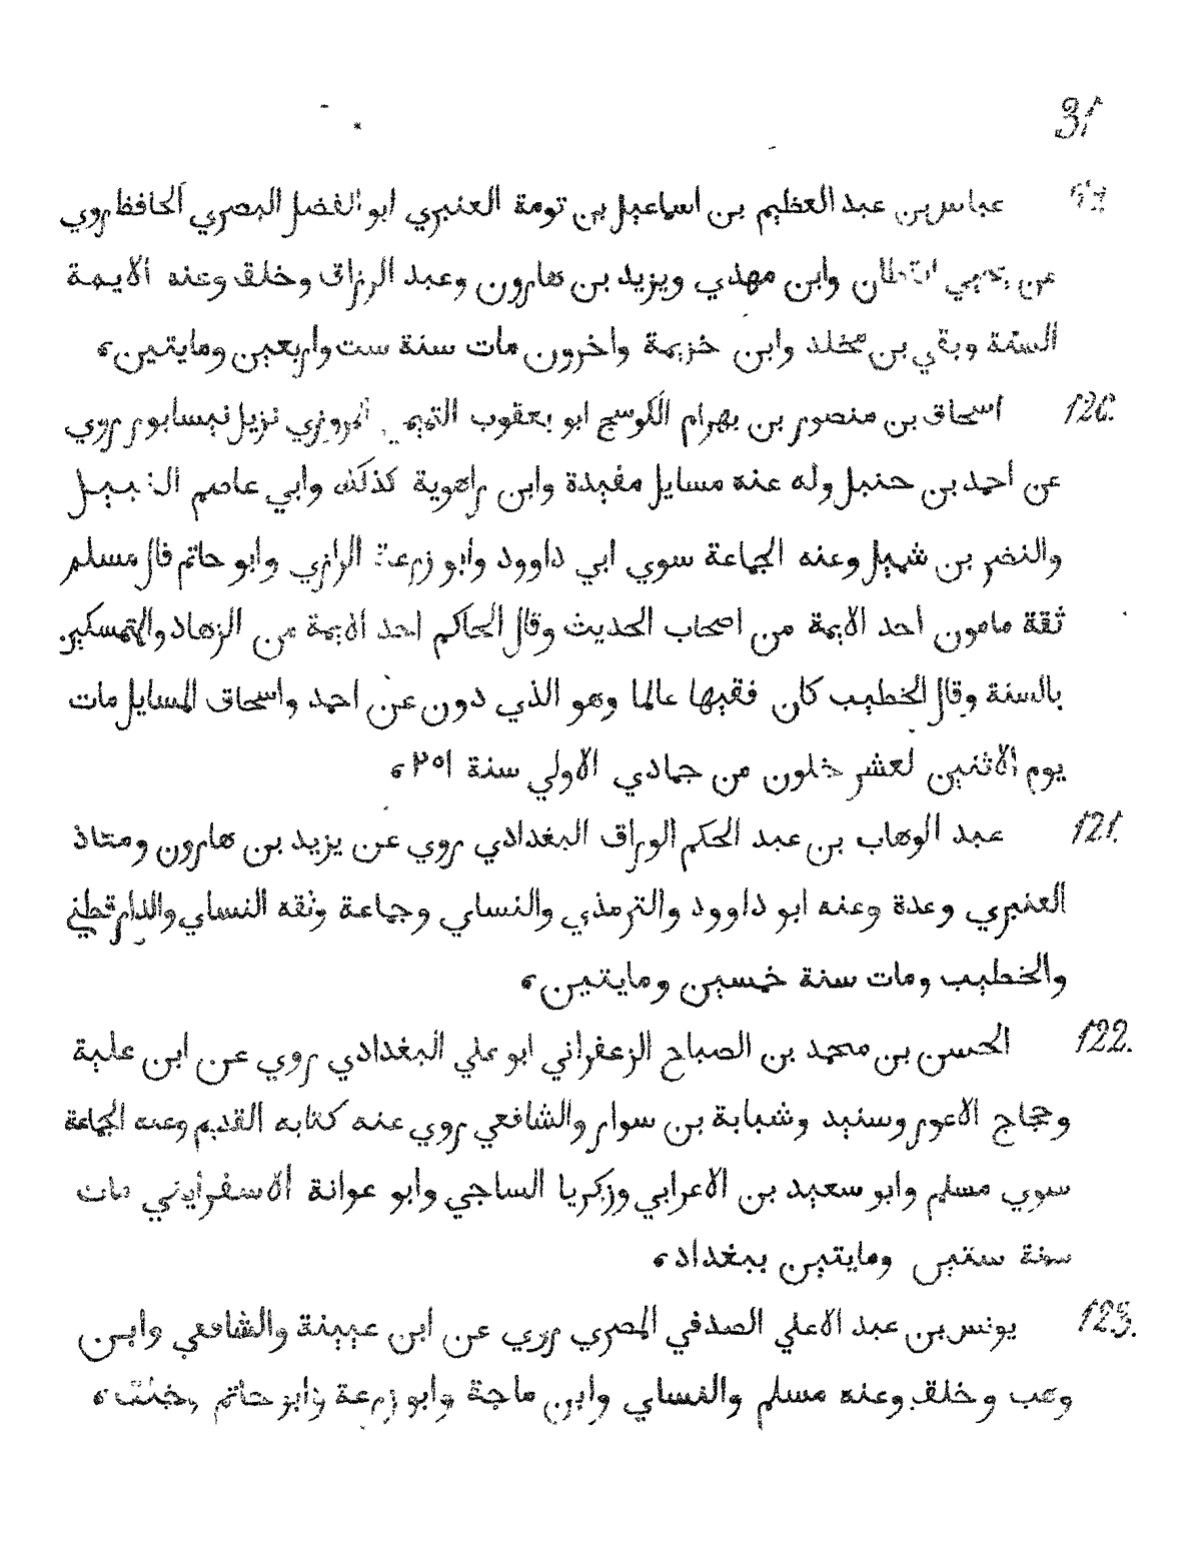 31
عباس بن عبد العظيم بن اسماعيل بن تومة العنبري ابو الفضل البصري الحافظ روي
عن يحيي القطان وابن مهدي ويزيد بن هارون وعبد الرزاق وخلق وعنه الايمة
الستة وبقي بن مخلد وابن خزيمة واخرون مات سنة ست واربعين ومايتين،
120. اسحاق بن منصور بن بهرام الكوسج ابو يعقوب المروزي نزيل نيسابور روي
عن احمد بن حنبل وله عنه مسايل مفيدة وابن راهوية كذلك وابي عاصم النبيل
والنضر بن شميل وعنه الجماعة سوي ابي داوود وابو زرعة الرازي وابو حاتم قال مسلم
ثقة مامون احد الايمة من اصحاب الحديث وقال الحاكم احد الايمة من الزهاد والمتمسكين
بالسنة وقال الخطيب كان فقيها عالما وهو الذي دون عن احمد واسحاق المسايل مات
يوم الاثنين لعشر خلون من جمادي الاولي سنة ٢٥١،
121. عبد الوهاب بن عبد الحكم الوراق البغدادي روي عن يزيد بن هارون ومتاذ
العنبري وعدة وعنه ابو داوود والترمذي والنساي وجماعة وثقه النساي والدارقطني
والخطيب ومات سنة خمسين ومايتين،
122. الحسن بن محمد بن الصباح الزعفراني ابو علي البغدادي روي عن ابن علية
وحجاج الاعور وسنيد وشبابة بن سوار والشافعي روي عنه كتابه القديم وعنه الجماعة
سوي مسلم وابو سعيد بن الاعرابي وزكريا الساجي وابو عوانة الاسفرايني مات
سنة ستين ومايتين ببغداد،
123. يونس بن عبد الاعلي الصدفي المصري روي عن ابن عيينة والشافعي وابن
وهب وخلق وعنه مسلم والنساي وابن ماجة وابو زرعة وابو حاتم